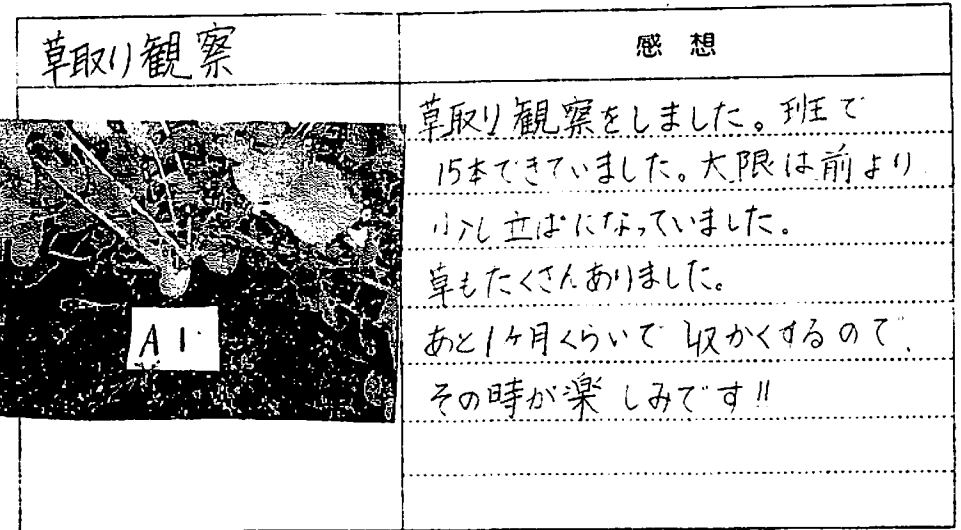 草取り観察
感想
草取り観察をしました。班で
15本できていました。大限は前より
少し立ぱになっていました。
草もたくさんありました。
あと1ヶ月くらいで収かくするので、
その時が楽しみです!!
A1